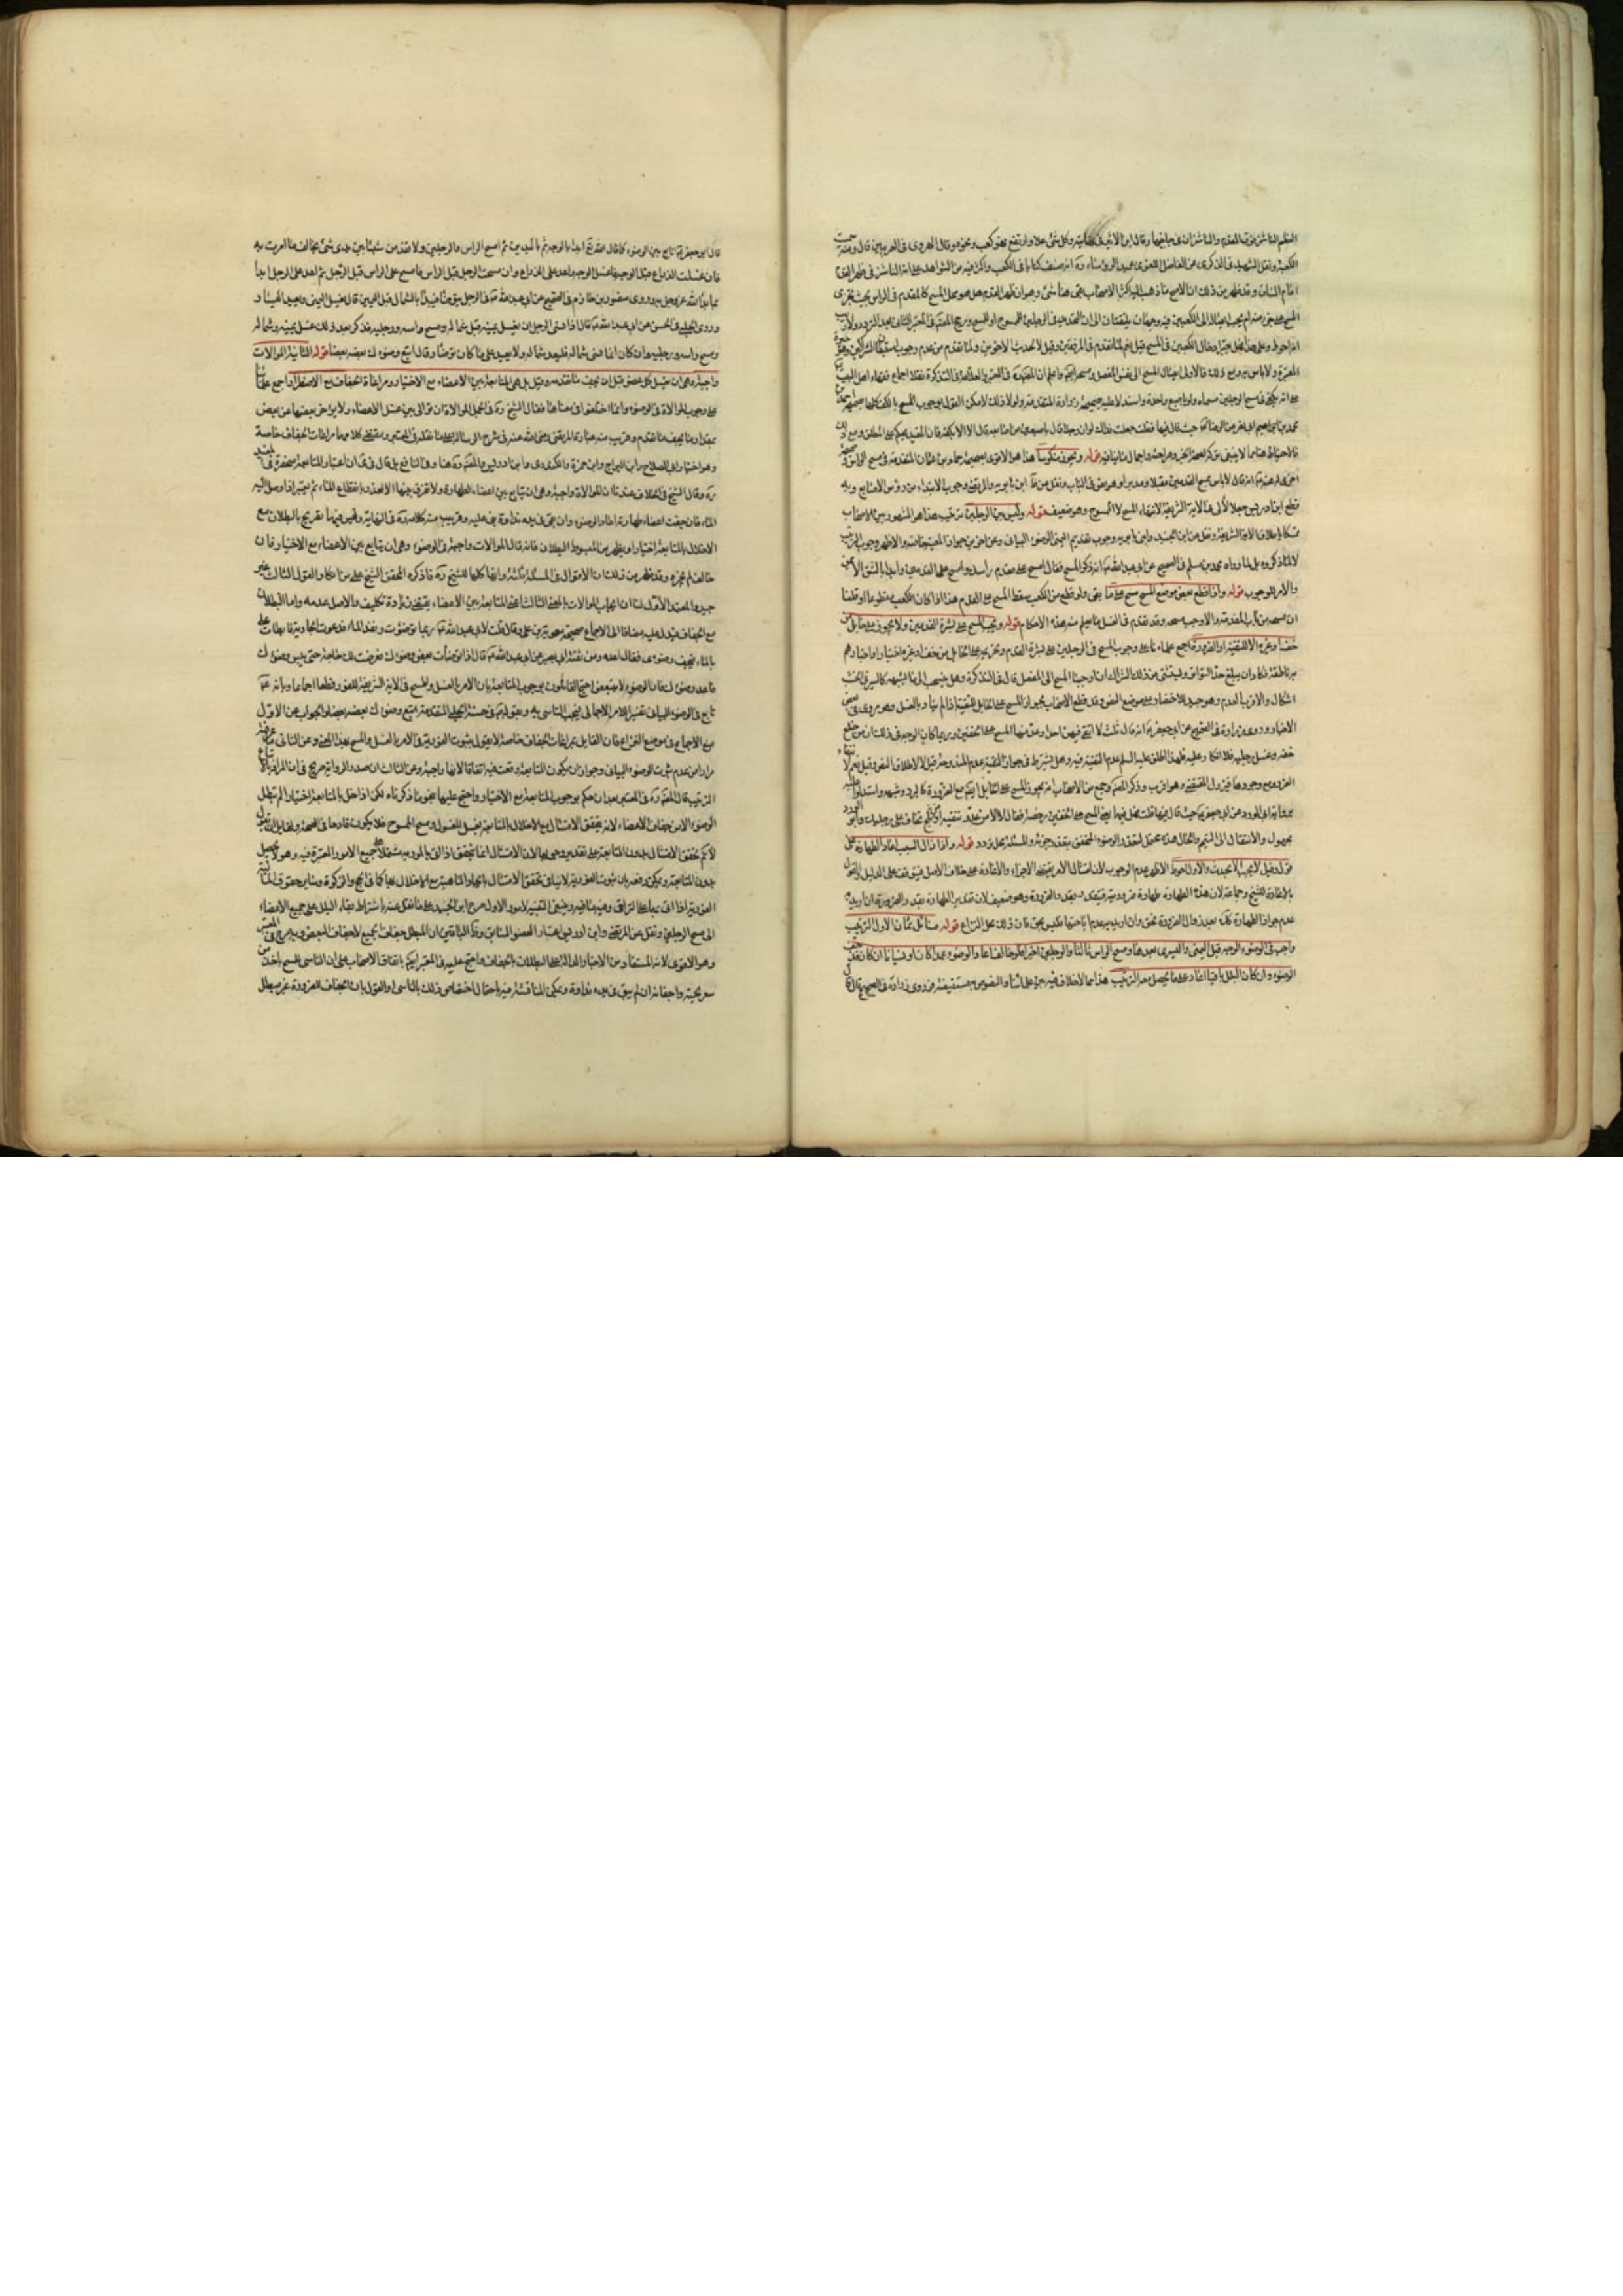 العظم الناشز فوق القدم والناشزان في جانبيها وقال ابن الاثير وكل شئ علا وارتفع فهو كعب ونحوه قال الهروي في الغريبين قال ومنه سميت
الكعبة ونقل الشهيد في الذكرى عن الفاضل اللغوي عميد الرؤساء ره انه صنف كتابا في الكعب واكثر فيه من الشواهد على انه الناشز في ظهر القدم
امام الساق وقد ظهر من ذلك ان الاصح ما ذهب اليه اكثر الاصحاب بقي هنا شئ وهو ان ظهر القدم هل هو محل المسح كالمقدم في الراس بحيث يجزى
المسح على جزء منه ام يجب ايصاله الى الكعبين فيه وجهان يلتفتان الى ان التحديد في الرجلين للممسوح او للمسح ورجح المصنف في المعتبر الثاني بعد التردد ولا ريب
انه احوط وعلى هذا فهل يجب ادخال الكعبين في المسح قيل نعم لما تقدم في المرفقين وقيل لا لحديث الاخوين ولما تقدم من عدم وجوب استبطان الشراكين وهو خيرة
المعتبر ولا باس به ومع ذلك فالاولى ايصال المسح الى نفس المفصل ومسحه ايضا واعلم ان المصنف ره في المعتبر والعلامة في التذكرة نقلا اجماع فقهاء اهل البيت
على انه يكفي في مسح الرجلين مسماه ولو باصبع واحدة واستدلا عليه بصحيحة زرارة المتقدمة ولولا ذلك لامكن القول بوجوب المسح بالكف كلها لصحيحة احمد بن
محمد بن ابي نصر عن الرضا ع حيث قال فيها فقلت جعلت فداك لو ان رجلا قال باصبعين من اصابعه قال لا الا بكفه فان المقيد يحكم على المطلق ومع ذلك
فالاحتياط هنا مما لا ينبغي تركه لصحة الخبر وصراحته واجمال ما ينافيه قوله ويجوز منكوسا هذا هو الاقوى لصحيحة حماد بن عثمان المتقدمة في مسح الراس وصحيحة
اخرى له عنه ع انه قال لا باس بمسح القدمين مقبلا ومدبرا وهو نص في الباب ونقل عن ظ ابن بابويه والمرتضى وجوب الابتداء من رؤس الاصابع وبه
قطع ابن ادريس جعلا لالى في الاية الشريفة لانتهاء المسح لا الممسوح وهو ضعيف قوله وليس بين الرجلين ترتيب هذا هو المشهور بين الاصحاب
تمسكا باطلاق الاية الشريفة ونقل عن ابن الجنيد وابن ابي عقيل وجوب تقديم اليمنى وعن اخرين جواز المعية خاصة والاظهر وجوب الترتيب
لا لما ذكروه بل لما رواه محمد بن مسلم في الصحيح عن ابي عبد الله ع انه ذكر المسح فقال امسح على مقدم راسك وامسح على القدمين وابدا بالشق الايمن
والامر للوجوب قوله واذا قطع بعض موضع المسح مسح على ما بقى ولو قطع من الكعب سقط المسح على القدم هذا اذا كان الكعب مقطوعا او قلنا
ان مسحه من باب المقدمة والا وجب مسحه وقد تقدم في الغسل ما يعلم منه هذه الاحكام قوله ويجب المسح على بشرة القدمين ولا يجوز على حائل من
خف او غيره الا للتقية او الضرورة اجمع علماؤنا على وجوب المسح في الرجلين على بشرة القدم وتحريمه على الحائل من خف او غيره اختيارا واخبارهم
به ناطقة وكاد ان يبلغ حد التواتر ويستثنى من ذلك الشراك ان اوجبنا المسح الى المفصل قال في التذكرة وهل ينسحب الى ما يشبهه كالسير في الخشب
اشكال والاقرب العدم وهو جيد للاختصار على موضع النص وقد قطع الاصحاب بجواز المسح على الحائل للتقية اذا لم يتاد بالغسل وهو مروى في بعض
الاخبار وروى زرارة في الصحيح عن ابي جعفر ع انه قال ثلث لا اتقي فيهن احدا وعد منها المسح على الخفين وربما كان الوجه في ذلك ان من خلع
خفه وغسل رجليه فلا انكار عليه فلهذا اطلق عليه السلم عدم التقية فيه وهل يشترط في جواز التقية عدم المندوحة قيل لا لاطلاق النص وقيل نعم لانتفاء
الضرر مع وجودها فيزول المقتضى وهو اقرب وذكر المصنف ره وجمع من الاصحاب انه يجوز المسح على الحائل ايضا مع الضرورة كالبرد وشبهه واستدلوا عليه
برواية ابي الورد عن ابي جعفر ع حيث قال فيها قلت فهل فيهما رخصة فقال لا الا من عدو تتقيه او ثلج تخاف على رجليك وابو الورد
مجهول والانتقال الى التيمم والحال هذه محتمل لتعذر الوضوء المتحقق بتعذر جزئه والمسئلة محل تردد قوله واذا زال السبب اعاد الطهارة على
قول وقيل لا يجب الا لحدث والاول احوط الاظهر عدم الوجوب لان امتثال الامر يقتضي الاجزاء والاعادة على خلاف الاصل فيتوقف على الدليل والقول
بالاعادة للشيخ وجماعة لان هذه الطهارة طهارة ضرورية فيتقدر بقدر الضرورة وهو ضعيف لان تقدير الطهارة بقدر الضرورة ان اريد به
عدم جواز الطهارة كك بعد زوال الضرورة فحق وان اريد به عدم اباحتها فليس بحق فان ذلك محل النزاع قوله مسائل ثمان الاول الترتيب
واجب في الوضوء الوجه قبل اليمنى واليسرى بعدها ومسح الراس ثالثا والرجلين اخيرا فلو خالف اعاد الوضوء عمدا كان او نسيانا ان كان قد جف
الوضوء وان كان البلل باقيا اعاد على ما يحصل معه الترتيب هذا مما لا خلاف فيه بين علمائنا والنصوص به مستفيضة فروى زرارة في الصحيح قال
قال ابو جعفر ع تابع بين الوضوء كما قال الله عز وجل ابدا بالوجه ثم باليدين ثم امسح الراس والرجلين ولا تقدمن شيئا بين يدى شئ تخالف ما امرت به
فان غسلت الذراع قبل الوجه فابدا بالوجه واعد على الذراع وان مسحت الرجل قبل الراس فامسح على الراس قبل الرجل ثم اعد على الرجل ابدا
بما بدا الله عز وجل به وروى منصور بن حازم في الصحيح عن ابي عبد الله ع في الرجل يتوضا فيبدا بالشمال قبل اليمين قال يغسل اليمين ويعيد اليسار
وروى الحلبي في الحسن عن ابي عبد الله ع قال اذا نسى الرجل ان يغسل يمينه فغسل شماله ومسح راسه ورجليه فذكر بعد ذلك غسل يمينه وشماله
ومسح راسه ورجليه وان كان انما نسى شماله فليغسل شماله ولا يعيد على ما كان توضا وقال اتبع وضوءك بعضه بعضا قوله الثانية الموالات
واجبة وهى ان يغسل كل عضو قبل ان يجف ما تقدمه وقيل بل هى المتابعة بين الاعضاء مع الاختيار ومراعاة الجفاف مع الاضطرار اجمع علمائنا
على وجوب الموالاة في الوضوء وانما اختلفوا في معناها فقال الشيخ ره في الجمل الموالاة ان توالى بين غسل الاعضاء ولا يؤخر بعضها عن بعض
بمقدار ما يجف ما تقدم وقريب منه عبارة المرتضى رضي الله عنه في شرح الرسالة على ما نقله في المعتبر ومقتضى كلامهما مراعات الجفاف خاصة
وهو اختيار ابي الصلاح وابن البراج وابن حمزة والكيدري وابن ادريس والمصنف ره هنا وفي النافع
ره وقال الشيخ في الخلاف عندنا ان الموالاة واجبة وهى ان يتابع بين اعضاء الطهارة ولا يفرق بينها الا لعذر بانقطاع الماء ثم يعتبر اذا وصل اليه
الماء فان جفت اعضاء طهارته اعاد الوضوء وان بقى في يده نداوة بنى عليه وقريب منه كلامه ره في النهاية وليس فيهما تصريح بالبطلان مع
الاخلال بالمتابعة اختيارا ويظهر من المبسوط البطلان فانه قال الموالات واجبة في الوضوء وهى ان يتابع بين الاعضاء مع الاختيار فان
خالف لم يجزه وقد ظهر من ذلك ان الاقوال في المسئلة ثلثة وانها كلها للشيخ ره فما ذكره المحقق الشيخ على من انكار القول الثالث غير
جيد والمعتمد الاول لنا ان ايجاب الموالات بالمعنى الثالث اعنى المتابعة بين الاعضاء يقتضى زيادة تكليف والاصل عدمه واما البطلان
مع الجفاف فيدل عليه مضافا الى الاجماع صحيحة معوية بن عمار قال قلت لابي عبد الله ع ربما توضات ونفد الماء فدعوت الجارية فابطات على
بالماء فيجف وضوءى فقال اعده وموثقة ابي بصير عن ابي عبد الله ع قال اذا توضات بعض وضوءك فعرضت لك حاجة حتى يبس وضوءك
فاعد وضوءك فان الوضوء لا يتبعض احتج القائلون بوجوب المتابعة بان الامر بالغسل والمسح في الاية الشريفة للفور قطعا اجماعا وبانه ع
تابع في الوضوء البياني تفسيرا للامر الاجمالي فيجب التاسي به وبقوله ع في حسنة الحلبي المتقدمة اتبع وضوءك بعضه بعضا والجواب عن الاول
الترتيب قال المصنف ره في المعتبر بعد ان حكم بوجوب المتابعة مع الاختيار واحتج عليها بنحو ما ذكرناه لكن اذا اخل بالمتابعة اختيارا لم يبطل
الوضوء الا مع جفاف الاعضاء لانه يتحقق الامتثال مع الاخلال بالمتابعة بغسل المغسول ومسح الممسوح فلا يكون قادحا في الصحة ولقائل ان يقول
لا نم تحقق الامتثال بدون المتابعة على تقدير وجوبها لان الامتثال انما يتحقق اذا اتى بالمامور به مشتملا على جميع الامور المعتبرة فيه وهو لا يحصل
بدون المتابعة ويمكن دفعه بان ثبوت الفورية لا ينافي تحقق الامتثال بايجاد الماهية مع الاخلال بها كما في الحج والزكوة
وهو الاقوى لانه المستفاد من الاخبار الدالة على البطلان بالجفاف واحتج عليه في المعتبر ايضا باتفاق الاصحاب على ان الناسي للمسح ياخذ من
شعر لحيته واجفانه ان لم يبق في يده نداوة ويمكن المناقشة فيه باحتمال اختصاص ذلك بالناسي والقول بان الجفاف للضرورة غير مبطل